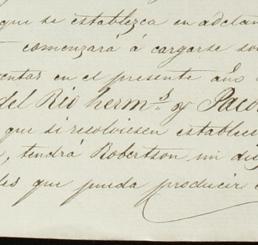 que se establezca en adelan
comenzará á cargarse so
entas en el presente año
del Rio herm.s y Paco
que si resolviesen establec
, tendrá Robertson un di
es que pueda producir